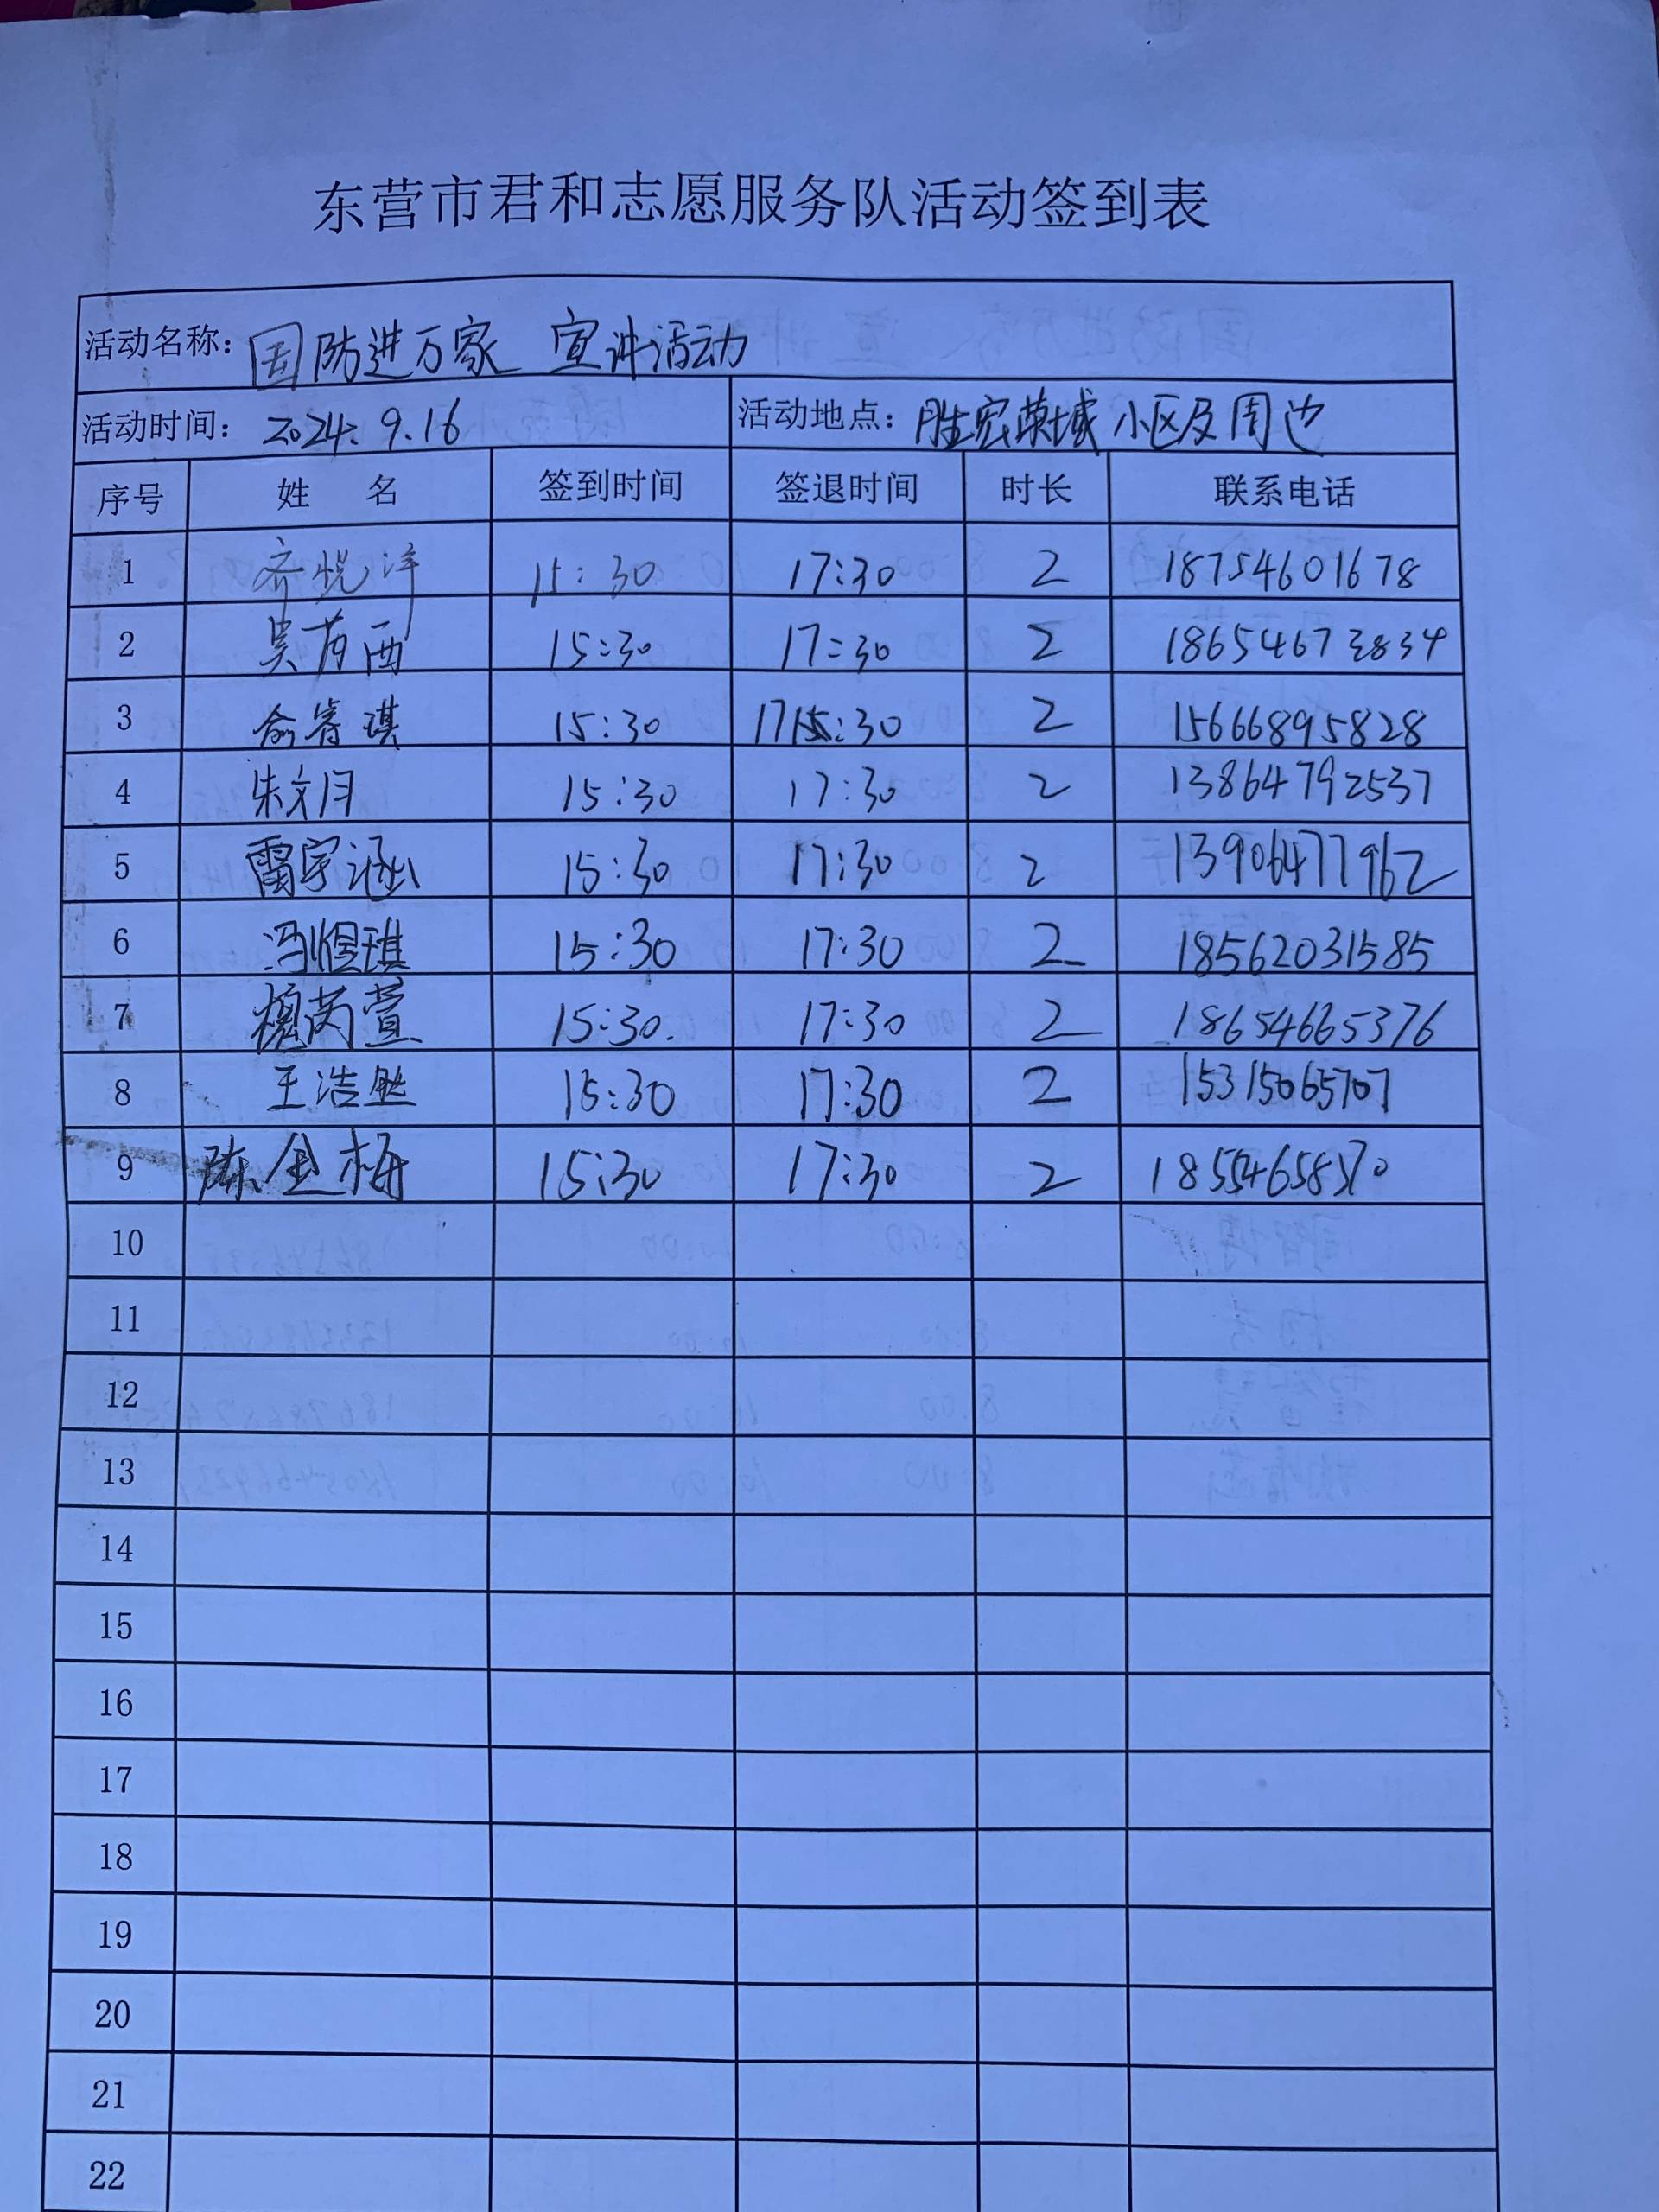 东营市君和志愿服务队活动签到表
活动名称: 国防进万家 宣讲活动
活动时间: 2024.9.16 活动地点: 胜宏荣域小区及周边
序号 姓 名 签到时间 签退时间 时长 联系电话
1 齐悦洋 15:30 17:30 2 18754601678
2 吴芮西 15:30 17:30 2 18654673834
3 俞睿琪 15:30 17:30 2 15666895828
4 朱文月 15:30 17:30 2 13864792537
5 雷宇涵 15:30 17:30 2 13906477962
6 冯煜琪 15:30 17:30 2 18562031585
7 槐芮萱 15:30. 17:30 2 18654665376
8 王浩然 15:30 17:30 2 15315065707
9 陈金梅 15:30 17:30 2
10
11
12
13
14
15
16
17
18
19
20
21
22